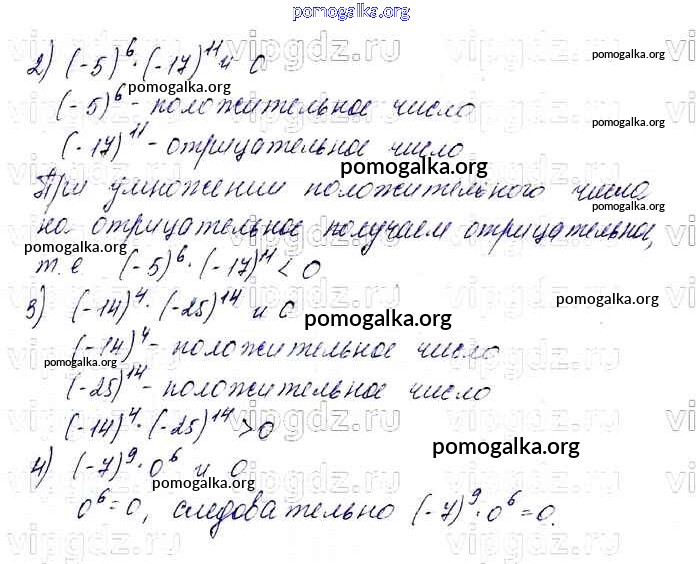 pomogalka.org
2) (-5)^6 · (-17)^11 и 0
pomogalka.org
pomogalka.org
(-5)^6 - положительное число
pomogalka.org
(-17)^11 - отрицательное число
pomogalka.org
При умножении положительного числа
pomogalka.org
на отрицательное получаем отрицательное,
pomogalka.org
т.е (-5)^6 · (-17)^11 < 0
3) (-14)^4 · (-25)^14 и 0
pomogalka.org
pomogalka.org
(-14)^4 - положительное число
pomogalka.org
(-25)^14 - положительное число
(-14)^4 · (-25)^14 > 0
pomogalka.org
4) (-7)^9 · 0^6 и 0
pomogalka.org
0^6 = 0, следовательно (-7)^9 · 0^6 = 0.
pomogalka.org
vipgdz.ru